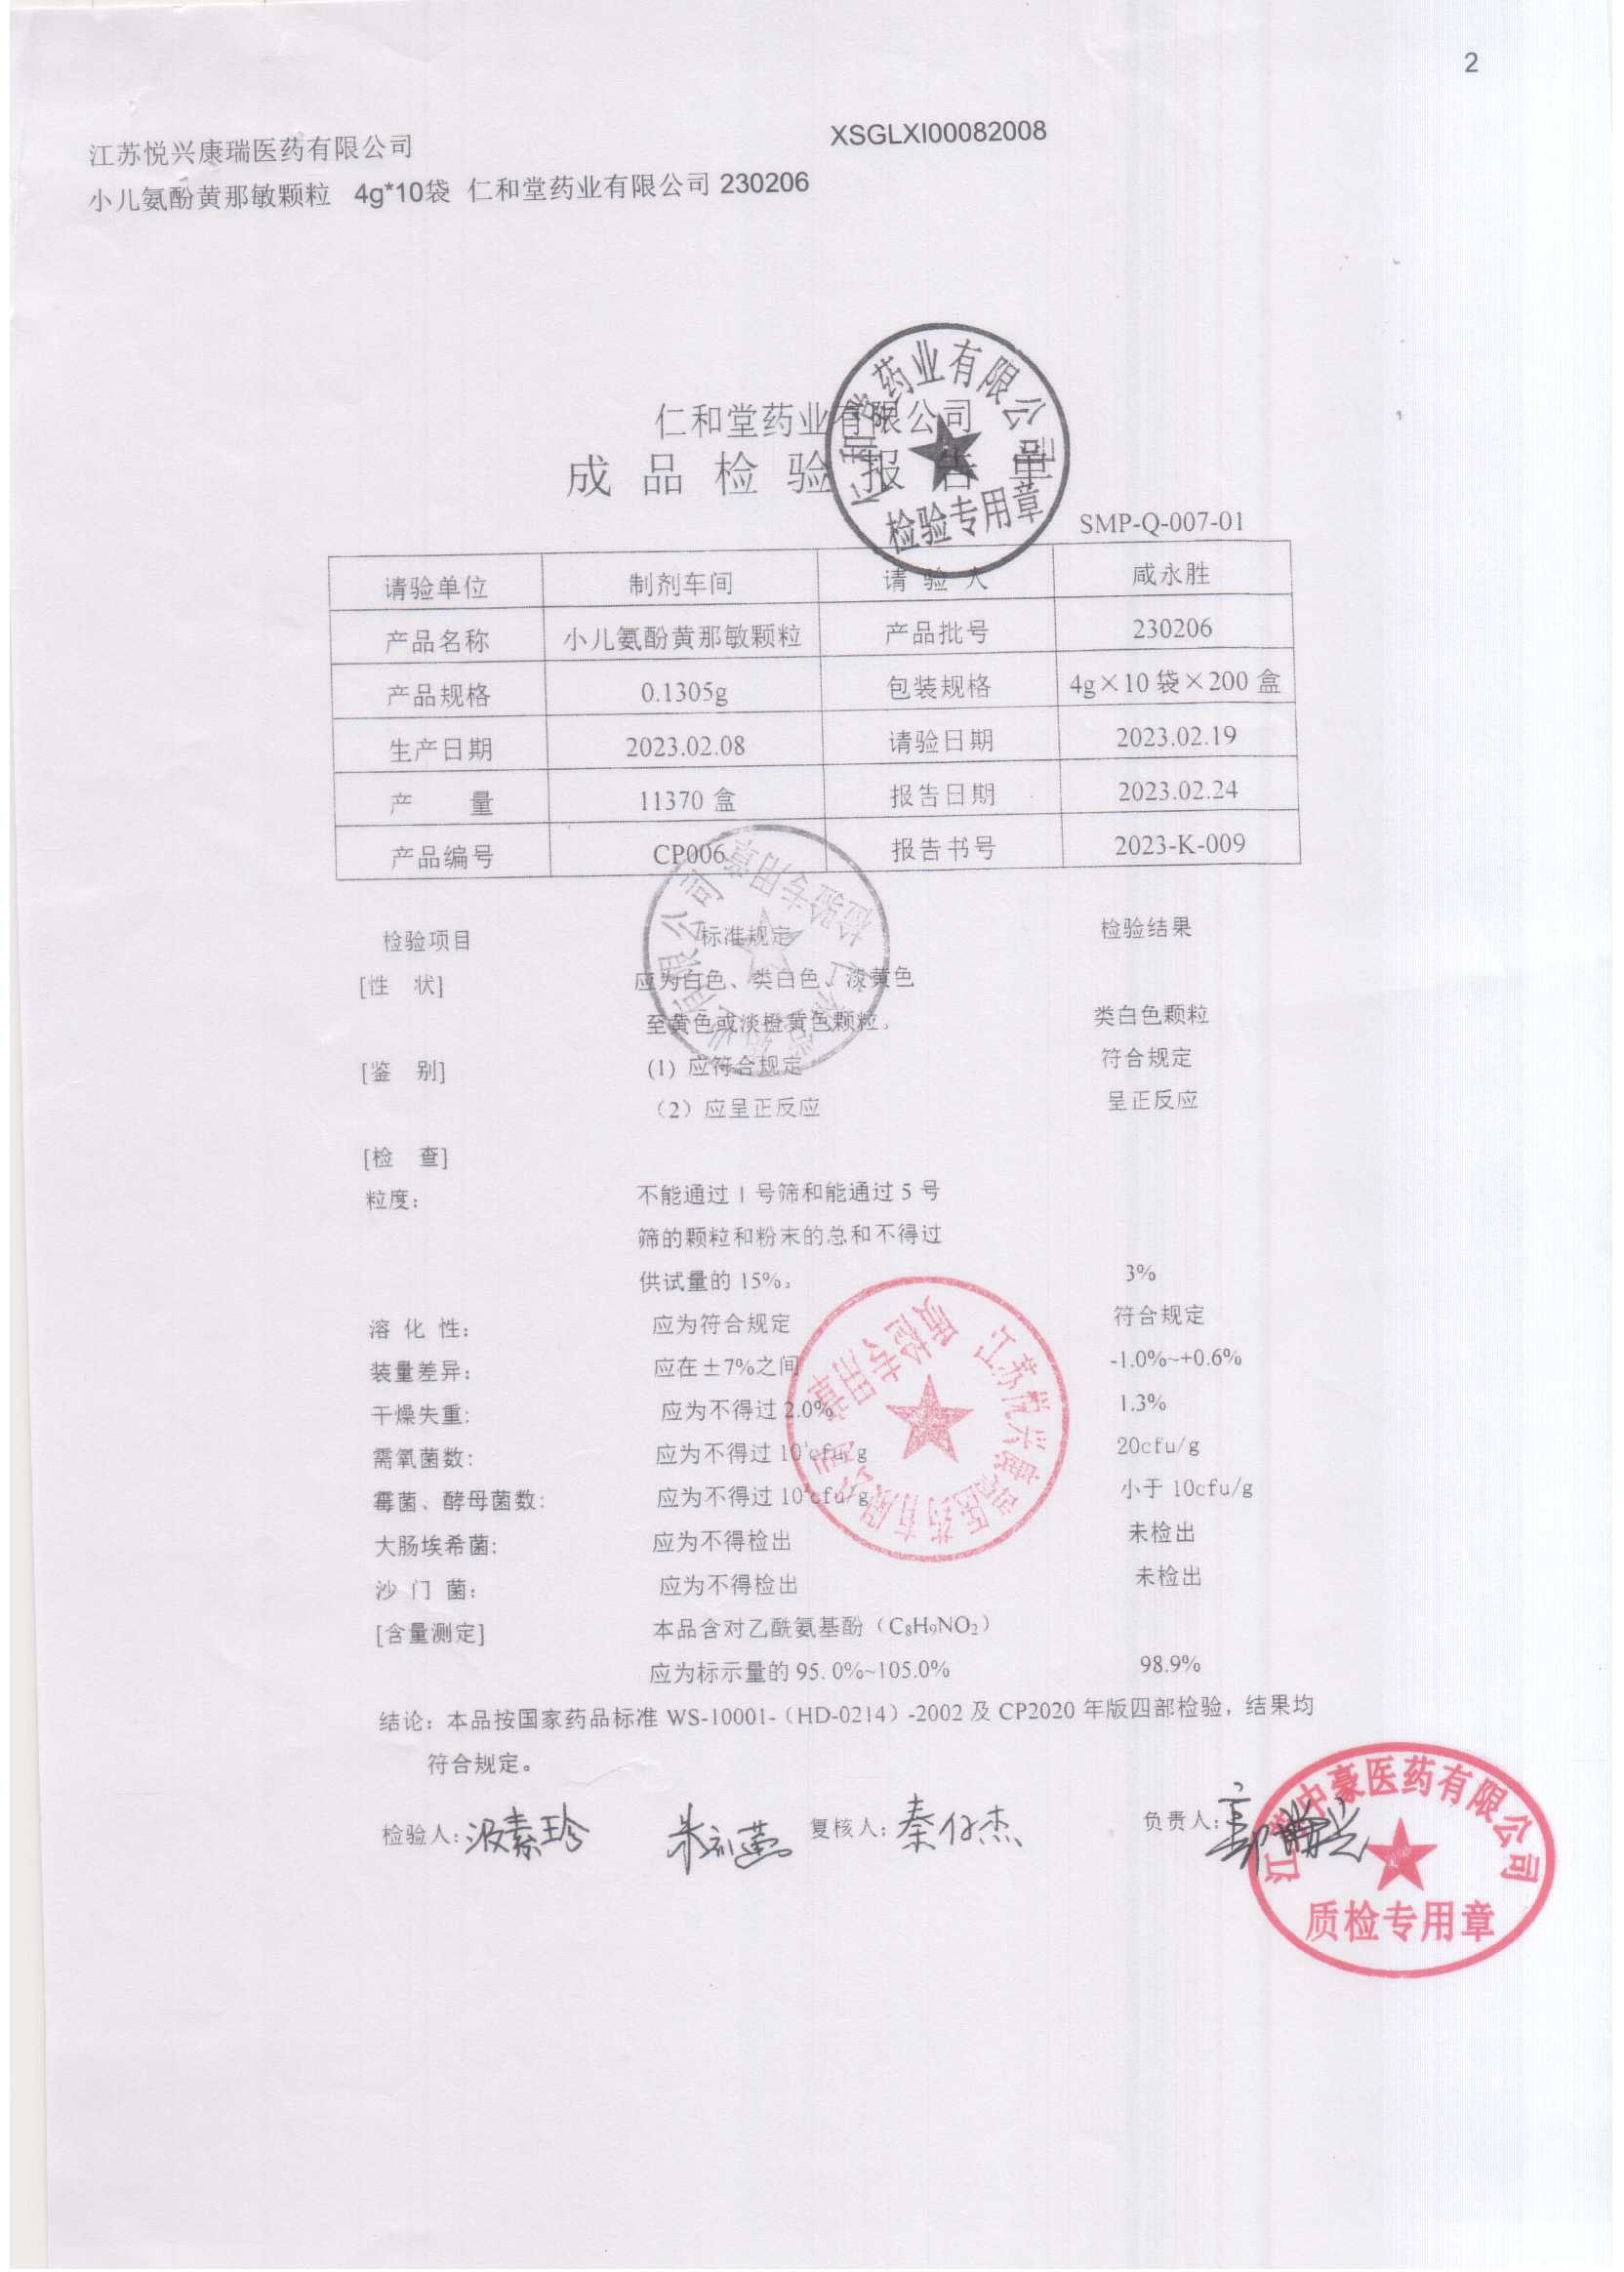 2
XSGLXI00082008
江苏悦兴康瑞医药有限公司
小儿氨酚黄那敏颗粒 4g*10袋 仁和堂药业有限公司 230206
仁和堂药业有限公司
成品检验报告单
仁和堂药业有限公司
检验专用章
SMP-Q-007-01
请验单位 制剂车间 请验人 咸永胜
产品名称 小儿氨酚黄那敏颗粒 产品批号 230206
产品规格 0.1305g 包装规格 4g×10袋×200盒
生产日期 2023.02.08 请验日期 2023.02.19
产 量 11370盒 报告日期 2023.02.24
产品编号 CP006 报告书号 2023-K-009
仁和堂药业有限公司
检验专用章
检验项目 标准规定 检验结果
[性 状] 应为白色、类白色、淡黄色
至黄色或淡橙黄色颗粒。 类白色颗粒
[鉴 别] (1) 应符合规定 符合规定
（2）应呈正反应 呈正反应
[检 查]
粒度： 不能通过1号筛和能通过5号
筛的颗粒和粉末的总和不得过
供试量的15%。 3%
溶 化 性： 应为符合规定 符合规定
装量差异： 应在±7%之间 -1.0%~+0.6%
干燥失重: 应为不得过2.0% 1.3%
需氧菌数: 应为不得过 cfu/g 20cfu/g
霉菌、酵母菌数: 应为不得过 cfu/g 小于10cfu/g
大肠埃希菌: 应为不得检出 未检出
沙 门 菌: 应为不得检出 未检出
[含量测定] 本品含对乙酰氨基酚（C₈H₉NO₂）
应为标示量的95.0%~105.0% 98.9%
江苏悦兴康瑞医药有限公司
质检处理章
结论：本品按国家药品标准 WS-10001-（HD-0214）-2002 及 CP2020 年版四部检验，结果均
符合规定。
检验人: 复核人: 秦 杰 负责人:
中豪医药有限公司
质检专用章